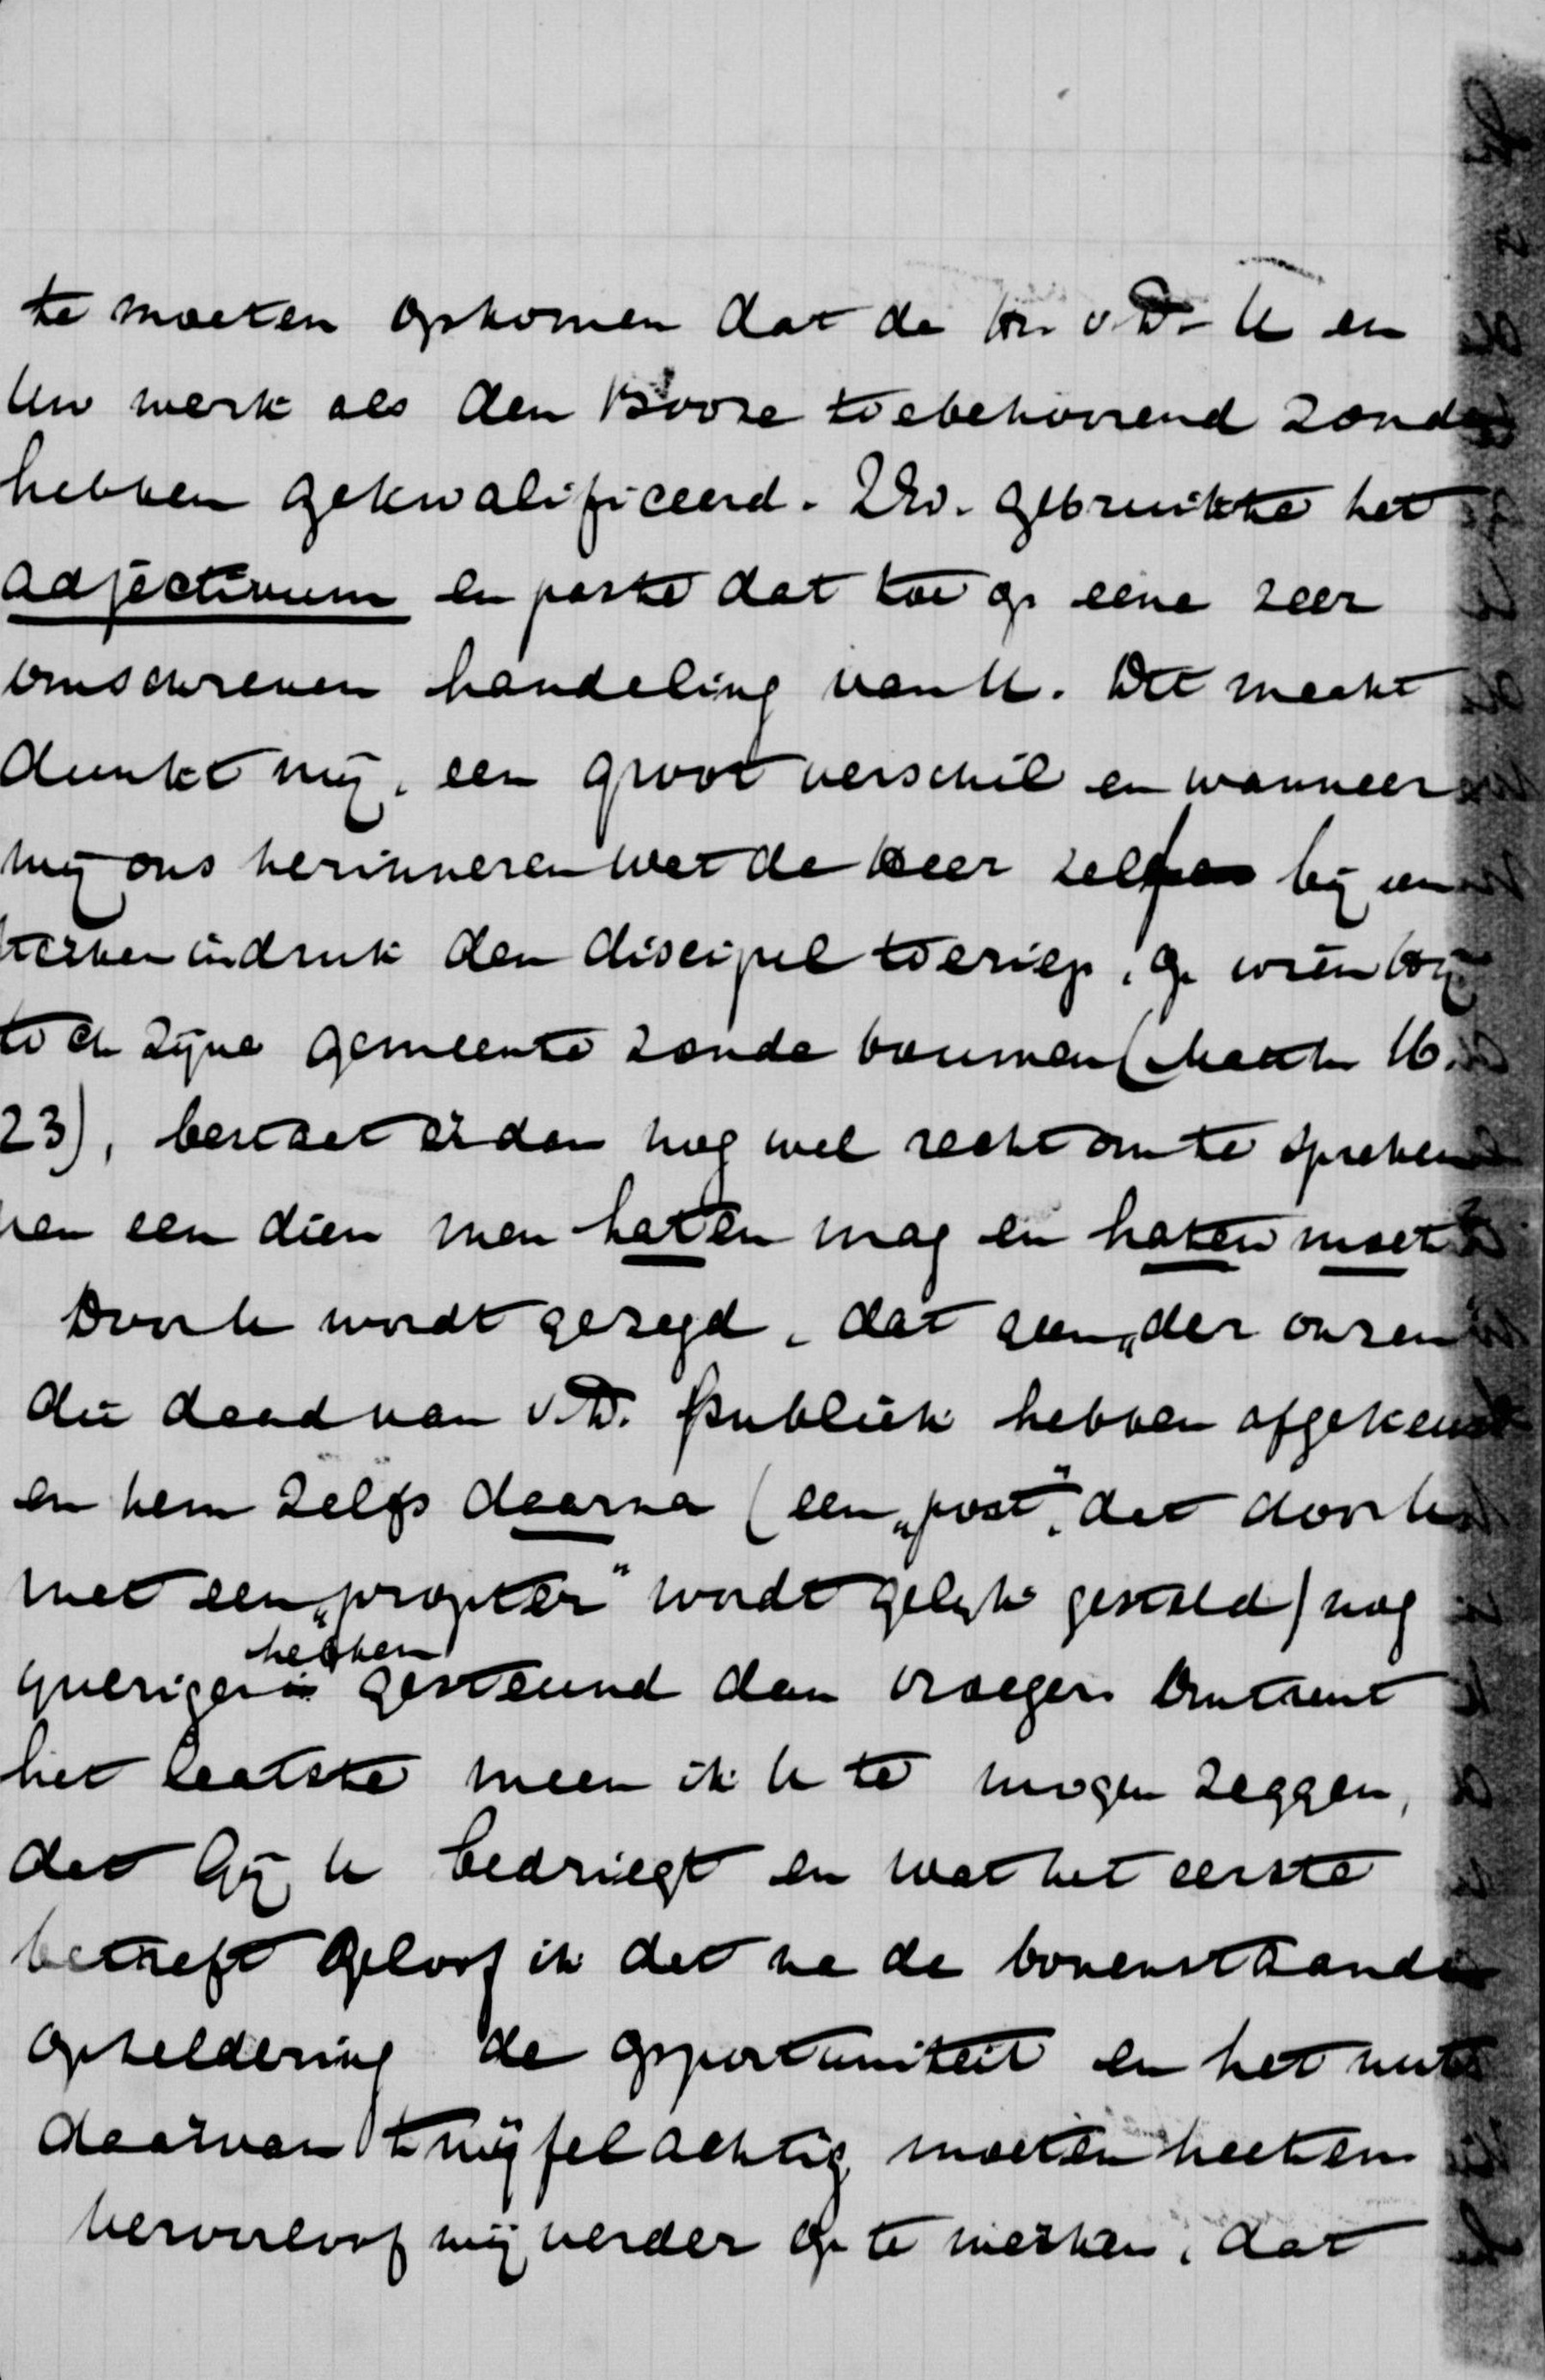 te moeten opkomen dat de hr. v.D. U en
Uw werk als den Booze toebehoorend zoude
hebben gekwalificeerd. ZEd. gebruikte het
adjectivum en paste dat toe op eene zeer
omschreven handeling van U. Dit maakt
dunkt mij, een groot verschil en wanneer
wij ons herinneren wat de Heer zelf bij
sterken indruk den discipel toeriep, op wien hij
toch zijne gemeente zoude bouwen (Matth 16.
23), bestaat er dan nog wel recht om te spreken
van een dien men haten mag en haten moet
Door U wordt gezegd, dat geen „der onzen
die daad van v.D. publiek hebben afgekeurd
en hem zelfs daarna (een „post", dat door U
met een „propter" wordt gelijk gesteld) nog
hebben
ijveriger gesteund dan vroeger. Omtrent
het laatste meen ik U te mogen zeggen,
dat Gij U bedriegt en wat het eerste
betreft geloof ik dat na de bovenstaande
opheldering de opportuniteit en het nut
daarvan twijfelachtig moeten heeten
Veroorloof mij verder op te merken, dat